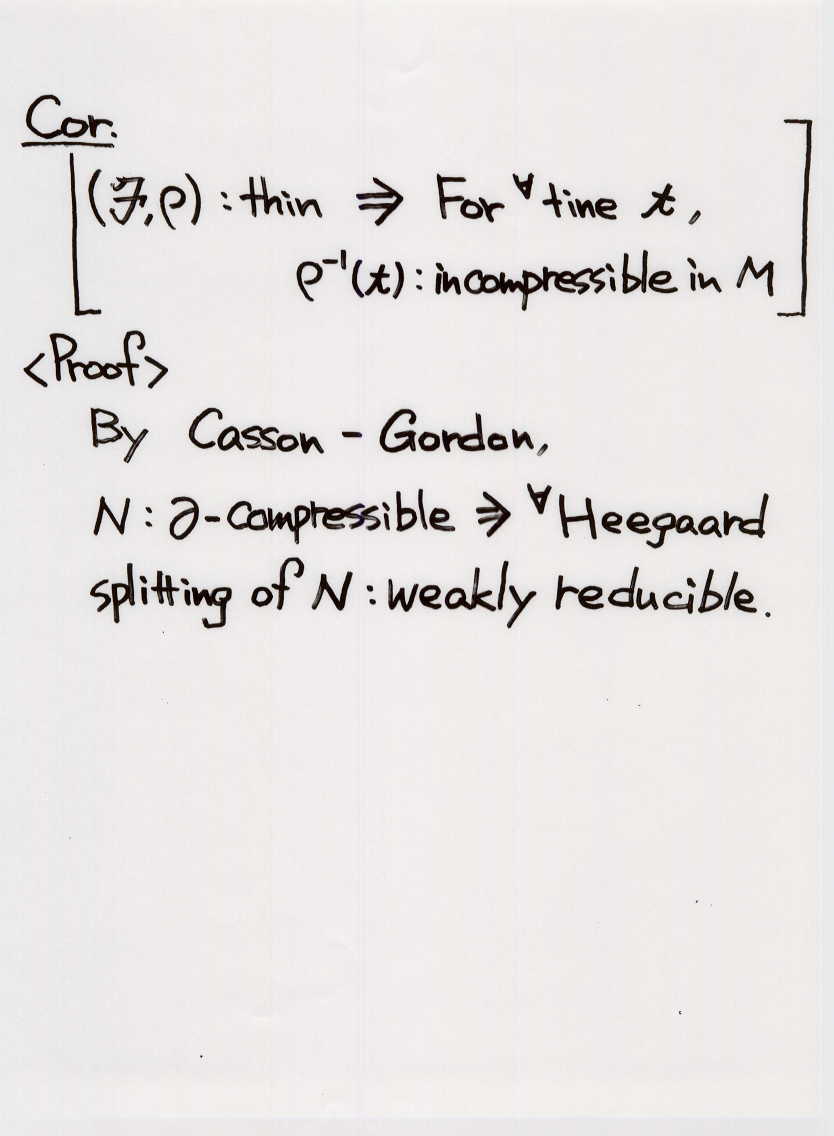 Cor.
(ℱ,ρ) : thin ⇒ For ∀ tine t,
ρ⁻¹(t) : incompressible in M
<Proof>
By Casson - Gordon,
N : ∂-compressible ⇒ ∀Heegaard
splitting of N : weakly reducible.